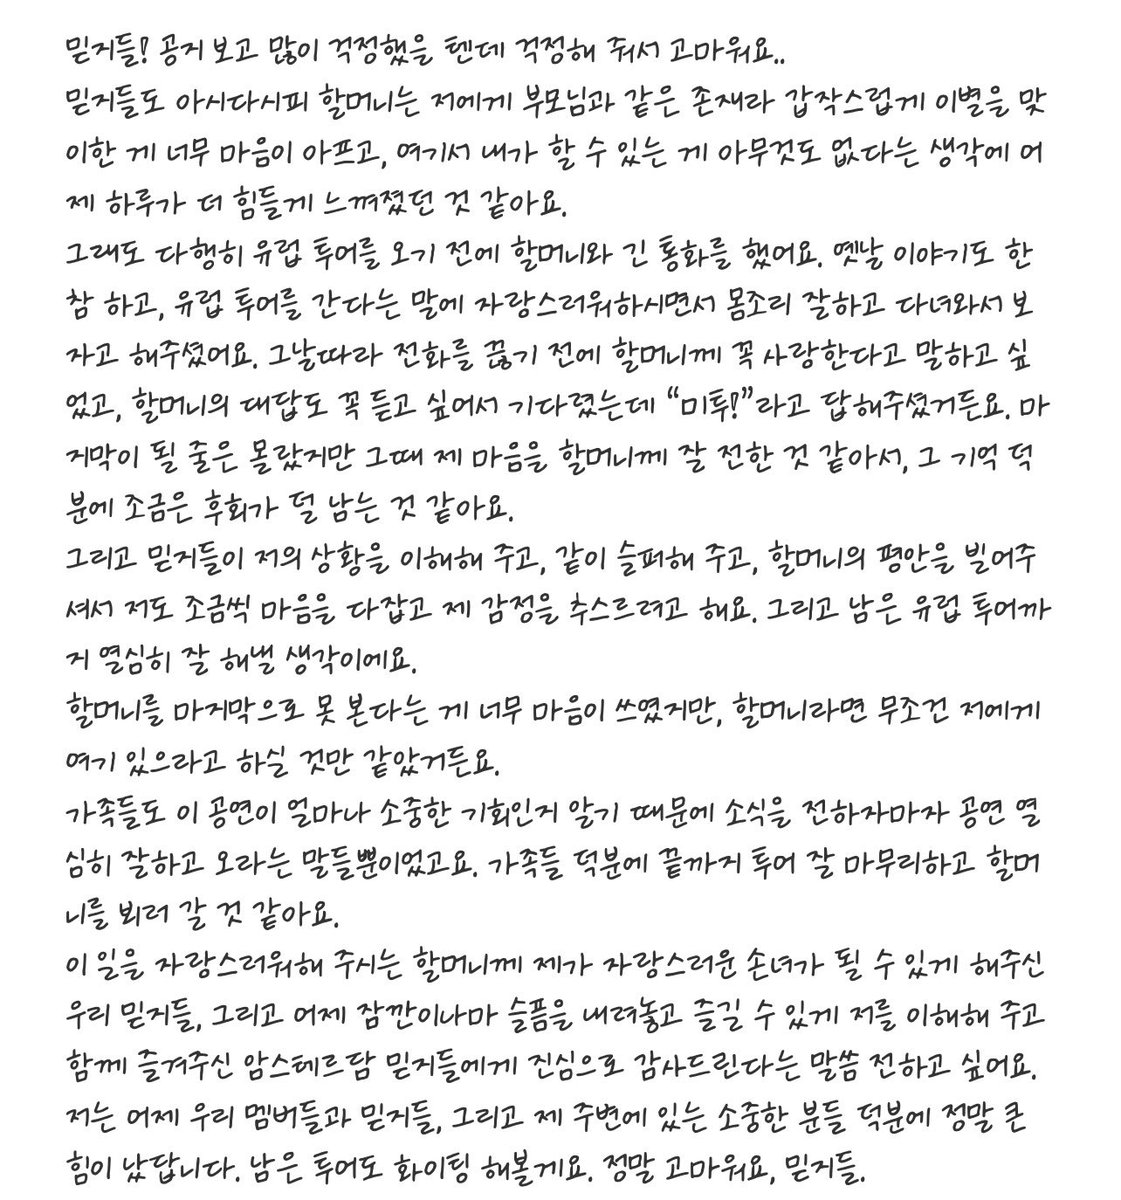 믿지들! 공지 보고 많이 걱정했을 텐데 걱정해 줘서 고마워요..
믿지들도 아시다시피 할머니는 저에게 부모님과 같은 존재라 갑작스럽게 이별을 맞
이한 게 너무 마음이 아프고, 여기서 내가 할 수 있는 게 아무것도 없다는 생각에 어
제 하루가 더 힘들게 느껴졌던 것 같아요.
그래도 다행히 유럽 투어를 오기 전에 할머니와 긴 통화를 했어요. 옛날 이야기도 한
참 하고, 유럽 투어를 간다는 말에 자랑스러워하시면서 몸조리 잘하고 다녀와서 보
자고 해주셨어요. 그날따라 전화를 끊기 전에 할머니께 꼭 사랑한다고 말하고 싶
었고, 할머니의 대답도 꼭 듣고 싶어서 기다렸는데 “미투!”라고 답해주셨거든요. 마
지막이 될 줄은 몰랐지만 그때 제 마음을 할머니께 잘 전한 것 같아서, 그 기억 덕
분에 조금은 후회가 덜 남는 것 같아요.
그리고 믿지들이 저의 상황을 이해해 주고, 같이 슬퍼해 주고, 할머니의 평안을 빌어주
셔서 저도 조금씩 마음을 다잡고 제 감정을 추스르려고 해요. 그리고 남은 유럽 투어까
지 열심히 잘 해낼 생각이에요.
할머니를 마지막으로 못 본다는 게 너무 마음이 쓰였지만, 할머니라면 무조건 저에게
여기 있으라고 하실 것만 같았거든요.
가족들도 이 공연이 얼마나 소중한 기회인지 알기 때문에 소식을 전하자마자 공연 열
심히 잘하고 오라는 말들뿐이었고요. 가족들 덕분에 끝까지 투어 잘 마무리하고 할머
니를 뵈러 갈 것 같아요.
이 일을 자랑스러워해 주시는 할머니께 제가 자랑스러운 손녀가 될 수 있게 해주신
우리 믿지들, 그리고 어제 잠깐이나마 슬픔을 내려놓고 즐길 수 있게 저를 이해해 주고
함께 즐겨주신 암스테르담 믿지들에게 진심으로 감사드린다는 말씀 전하고 싶어요.
저는 어제 우리 멤버들과 믿지들, 그리고 제 주변에 있는 소중한 분들 덕분에 정말 큰
힘이 났답니다. 남은 투어도 화이팅 해볼게요. 정말 고마워요, 믿지들.